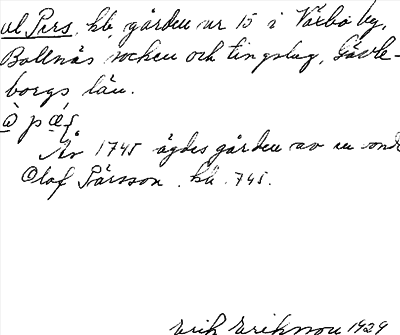 ul Pers, kb, gården nr 15 i Växbo by,
Bollnäs socken och tingslag, Gävle-
borgs län.
År 1745 ägdes gården av en
Olof Pärsson. kb. 745.
Erik Eriksson 1929